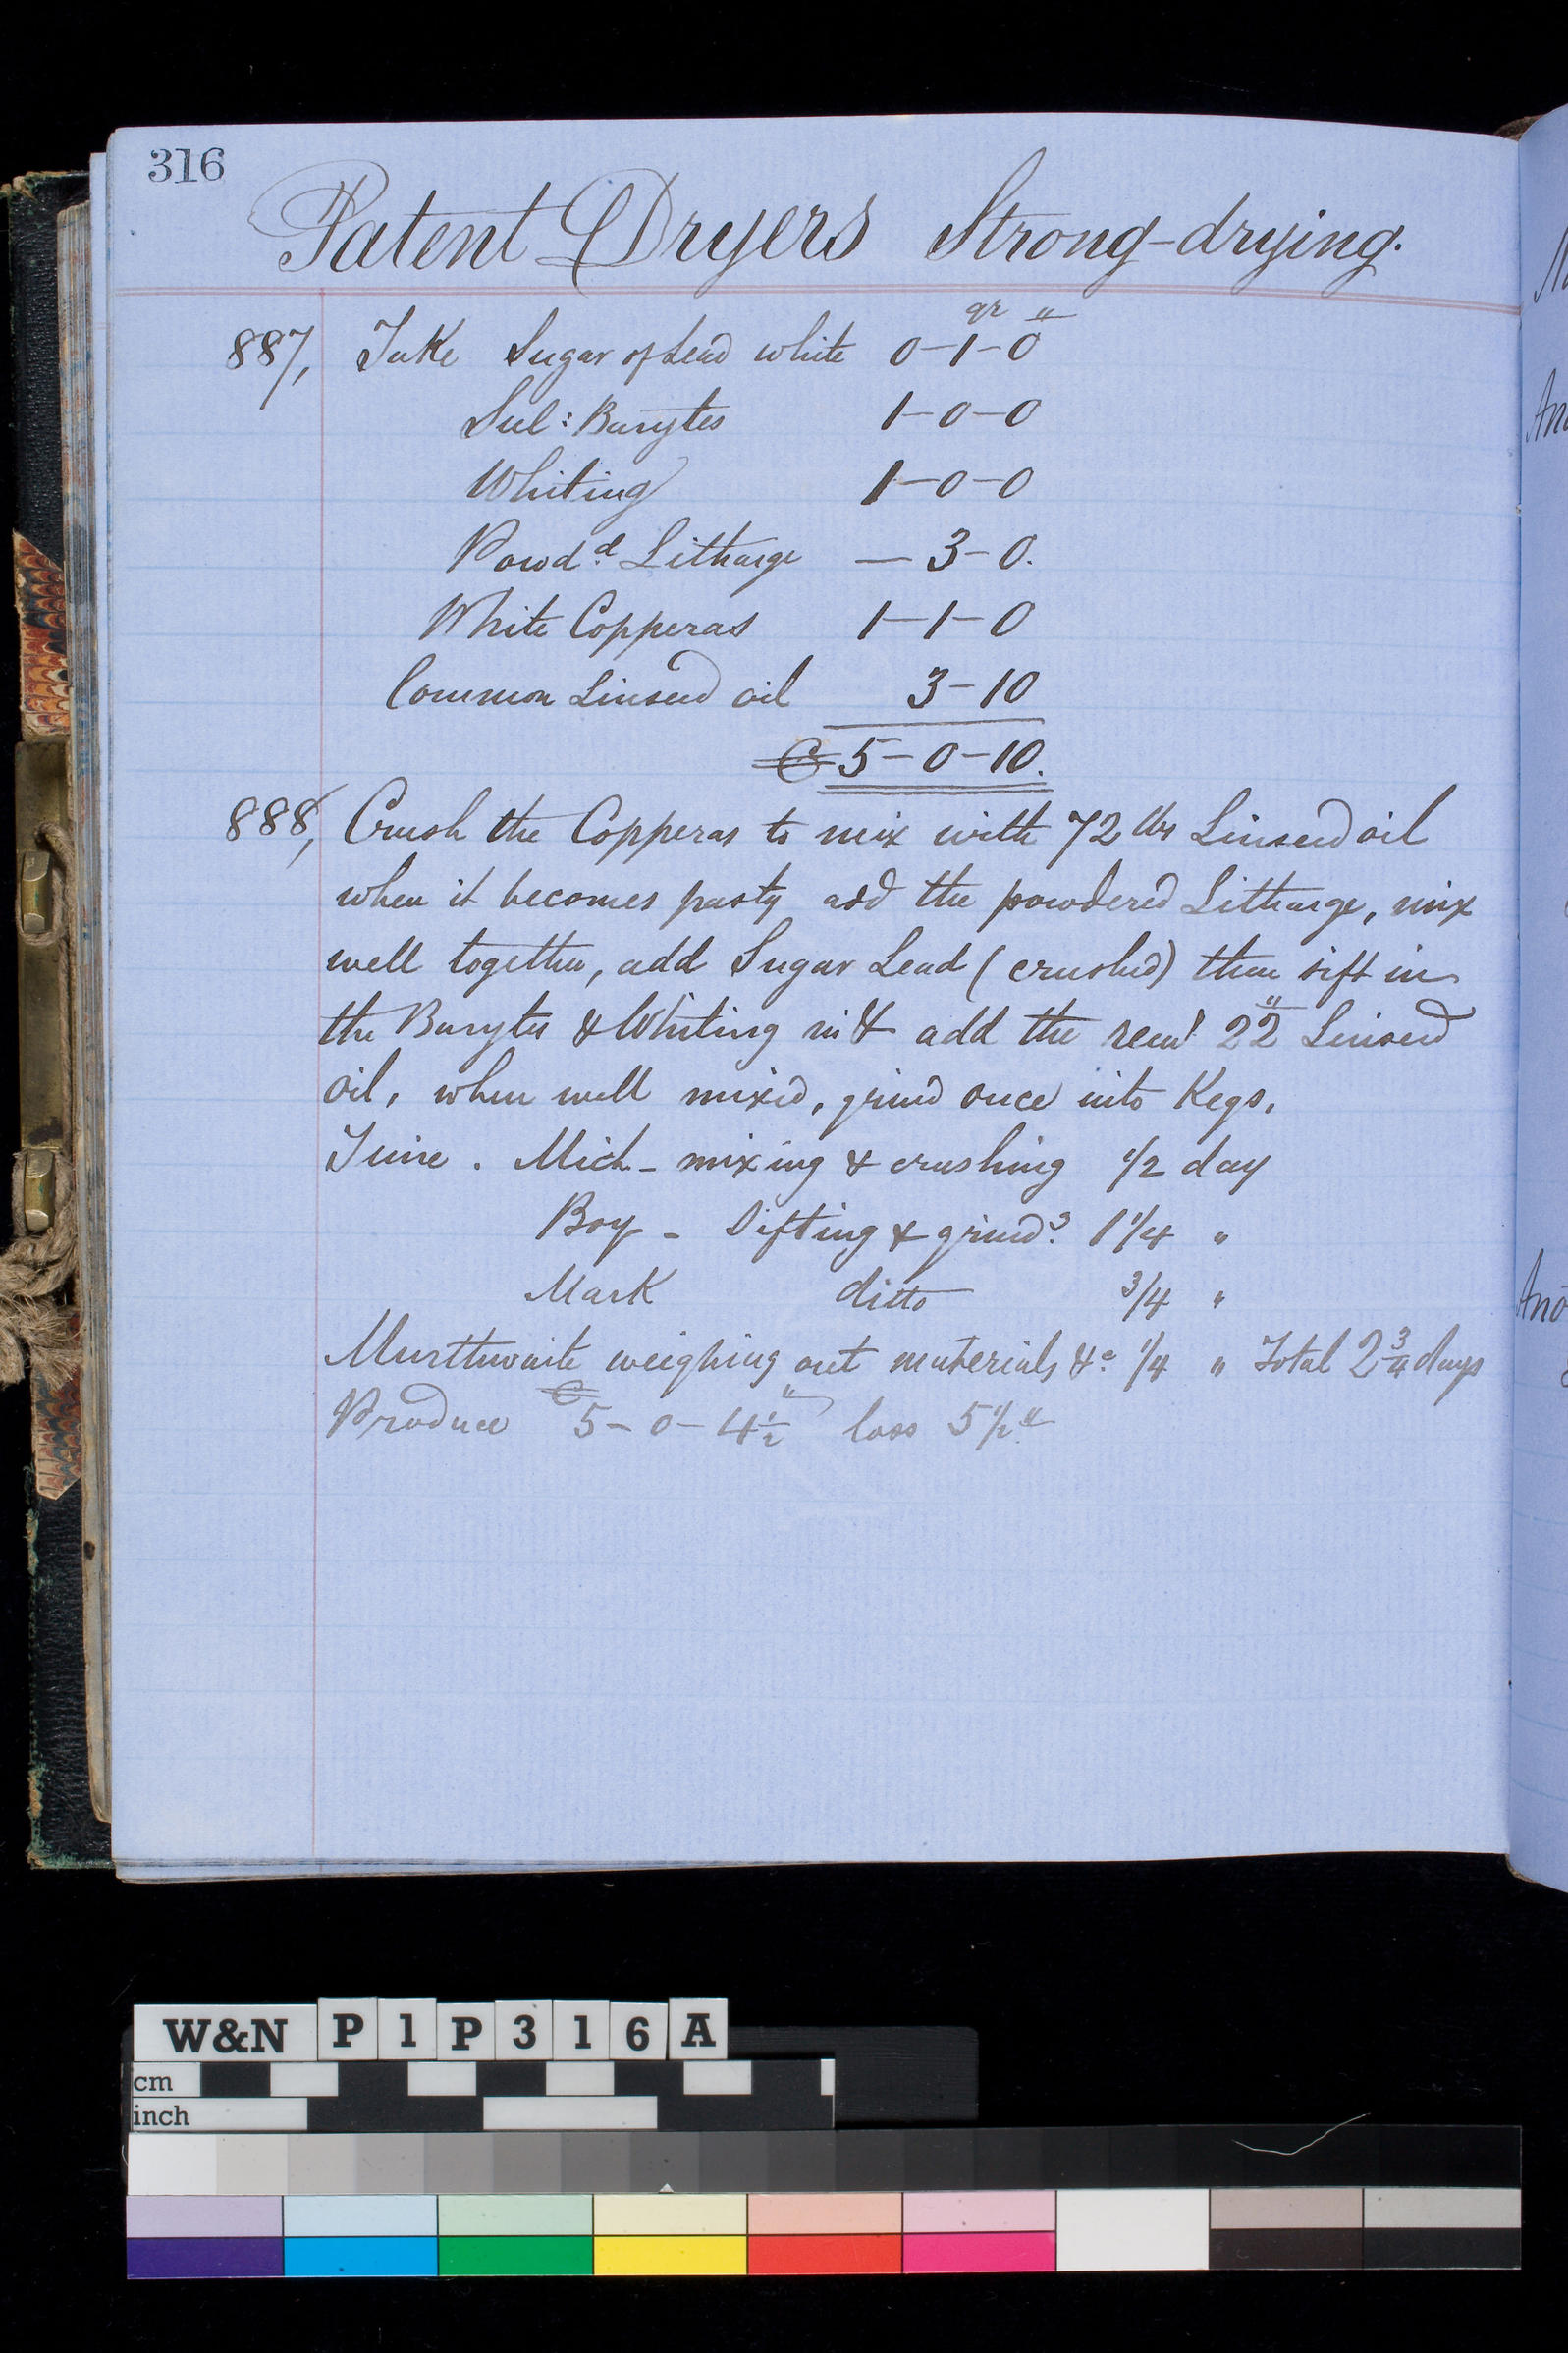 316
Patent Dryers Strong-drying.
qr "
887, Take Sugar of Lead white 0-1-0
Sul: Barytes 1-0-0
Whiting 1-0-0
Powd.d Litharge — 3-0.
White Copperas 1-1-0
Common Linseed oil 3-10
C 5-0-10.
888, Crush the Copperas to mix with 72 lbs Linseed oil
when it becomes pasty add the powdered Litharge, mix
well together, add Sugar Lead (crushed) then sift in
the Barytes & Whiting add the rem! 22" Linseed
oil, when well mixed, grind once into Kegs.
Time. Mich - mixing & crushing 1/2 day
Boy - Sifting & grind.g 1 1/4 "
Mark ditto 3/4 "
Murthwaite weighing out materials &c. 1/4 " Total 2 3/4 days
Produce C 5-0-4 1/2" loss 5 1/2"
W&N P1P316A
cm
inch